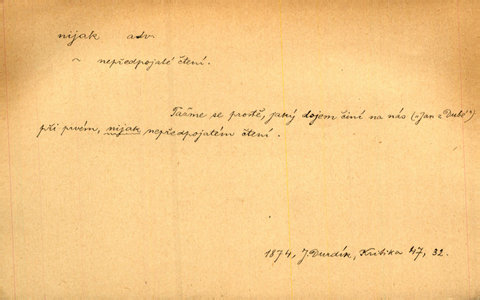 nijak adv.
~ nepředpojaté čtení.
Tažme se prostě, jaký dojem činí na nás („Jan z Dubé“)
při prvém, nijak nepředpojatém čtení.
1874, J. Durdík, Kritika 47, 32.